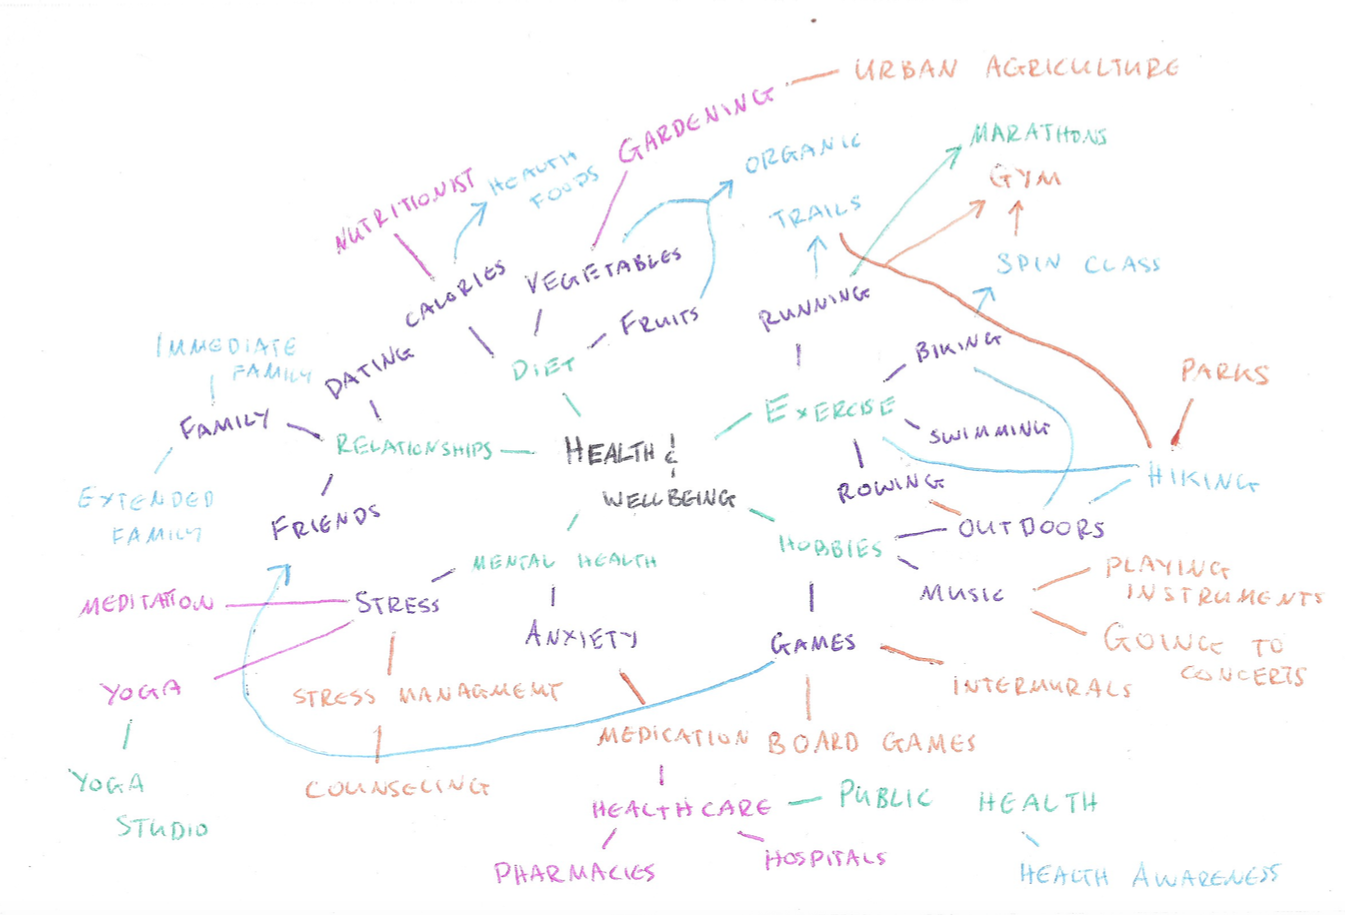 URBAN AGRICULTURE
GARDENING
MARATHONS
ORGANIC
HEALTH
FOODS
NUTRITIONIST
GYM
TRAILS
SPIN CLASS
VEGETABLES
CALORIES
RUNNING
FRUITS
IMMEDIATE
FAMILY
DATING
DIET
BIKING
PARKS
EXERCISE
FAMILY
SWIMMING
RELATIONSHIPS
HEALTH &
WELLBEING
HIKING
ROWING
EXTENDED
FAMILY
FRIENDS
OUTDOORS
HOBBIES
MENTAL HEALTH
PLAYING
INSTRUMENTS
MUSIC
MEDITATION
STRESS
ANXIETY
GAMES
GOING TO
CONCERTS
YOGA
STRESS MANAGMENT
INTERMURALS
MEDICATION
BOARD GAMES
YOGA
STUDIO
COUNSELING
HEALTHCARE
PUBLIC HEALTH
PHARMACIES
HOSPITALS
HEALTH AWARENESS